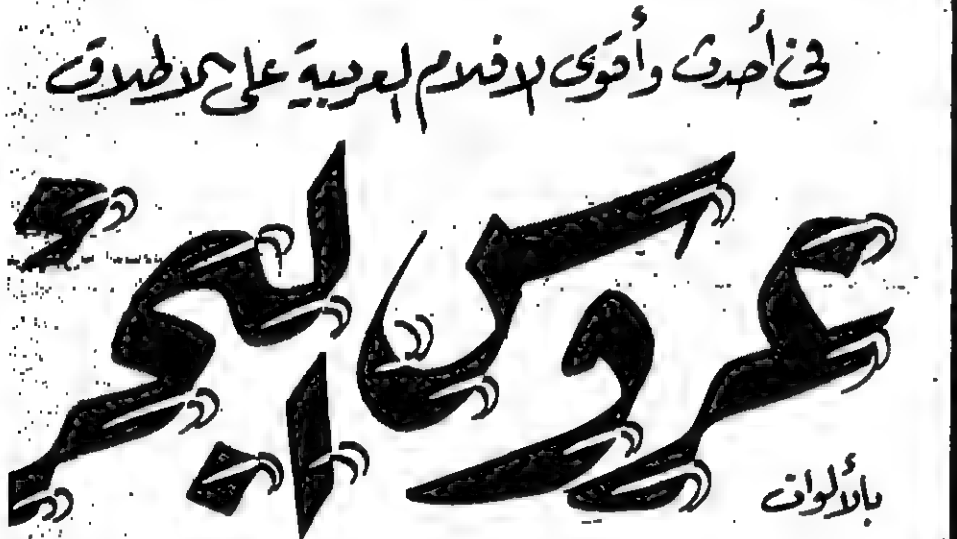 في أحدث وأقوى الافلام العربية على الاطلاق
عروس البحر
بالألوان